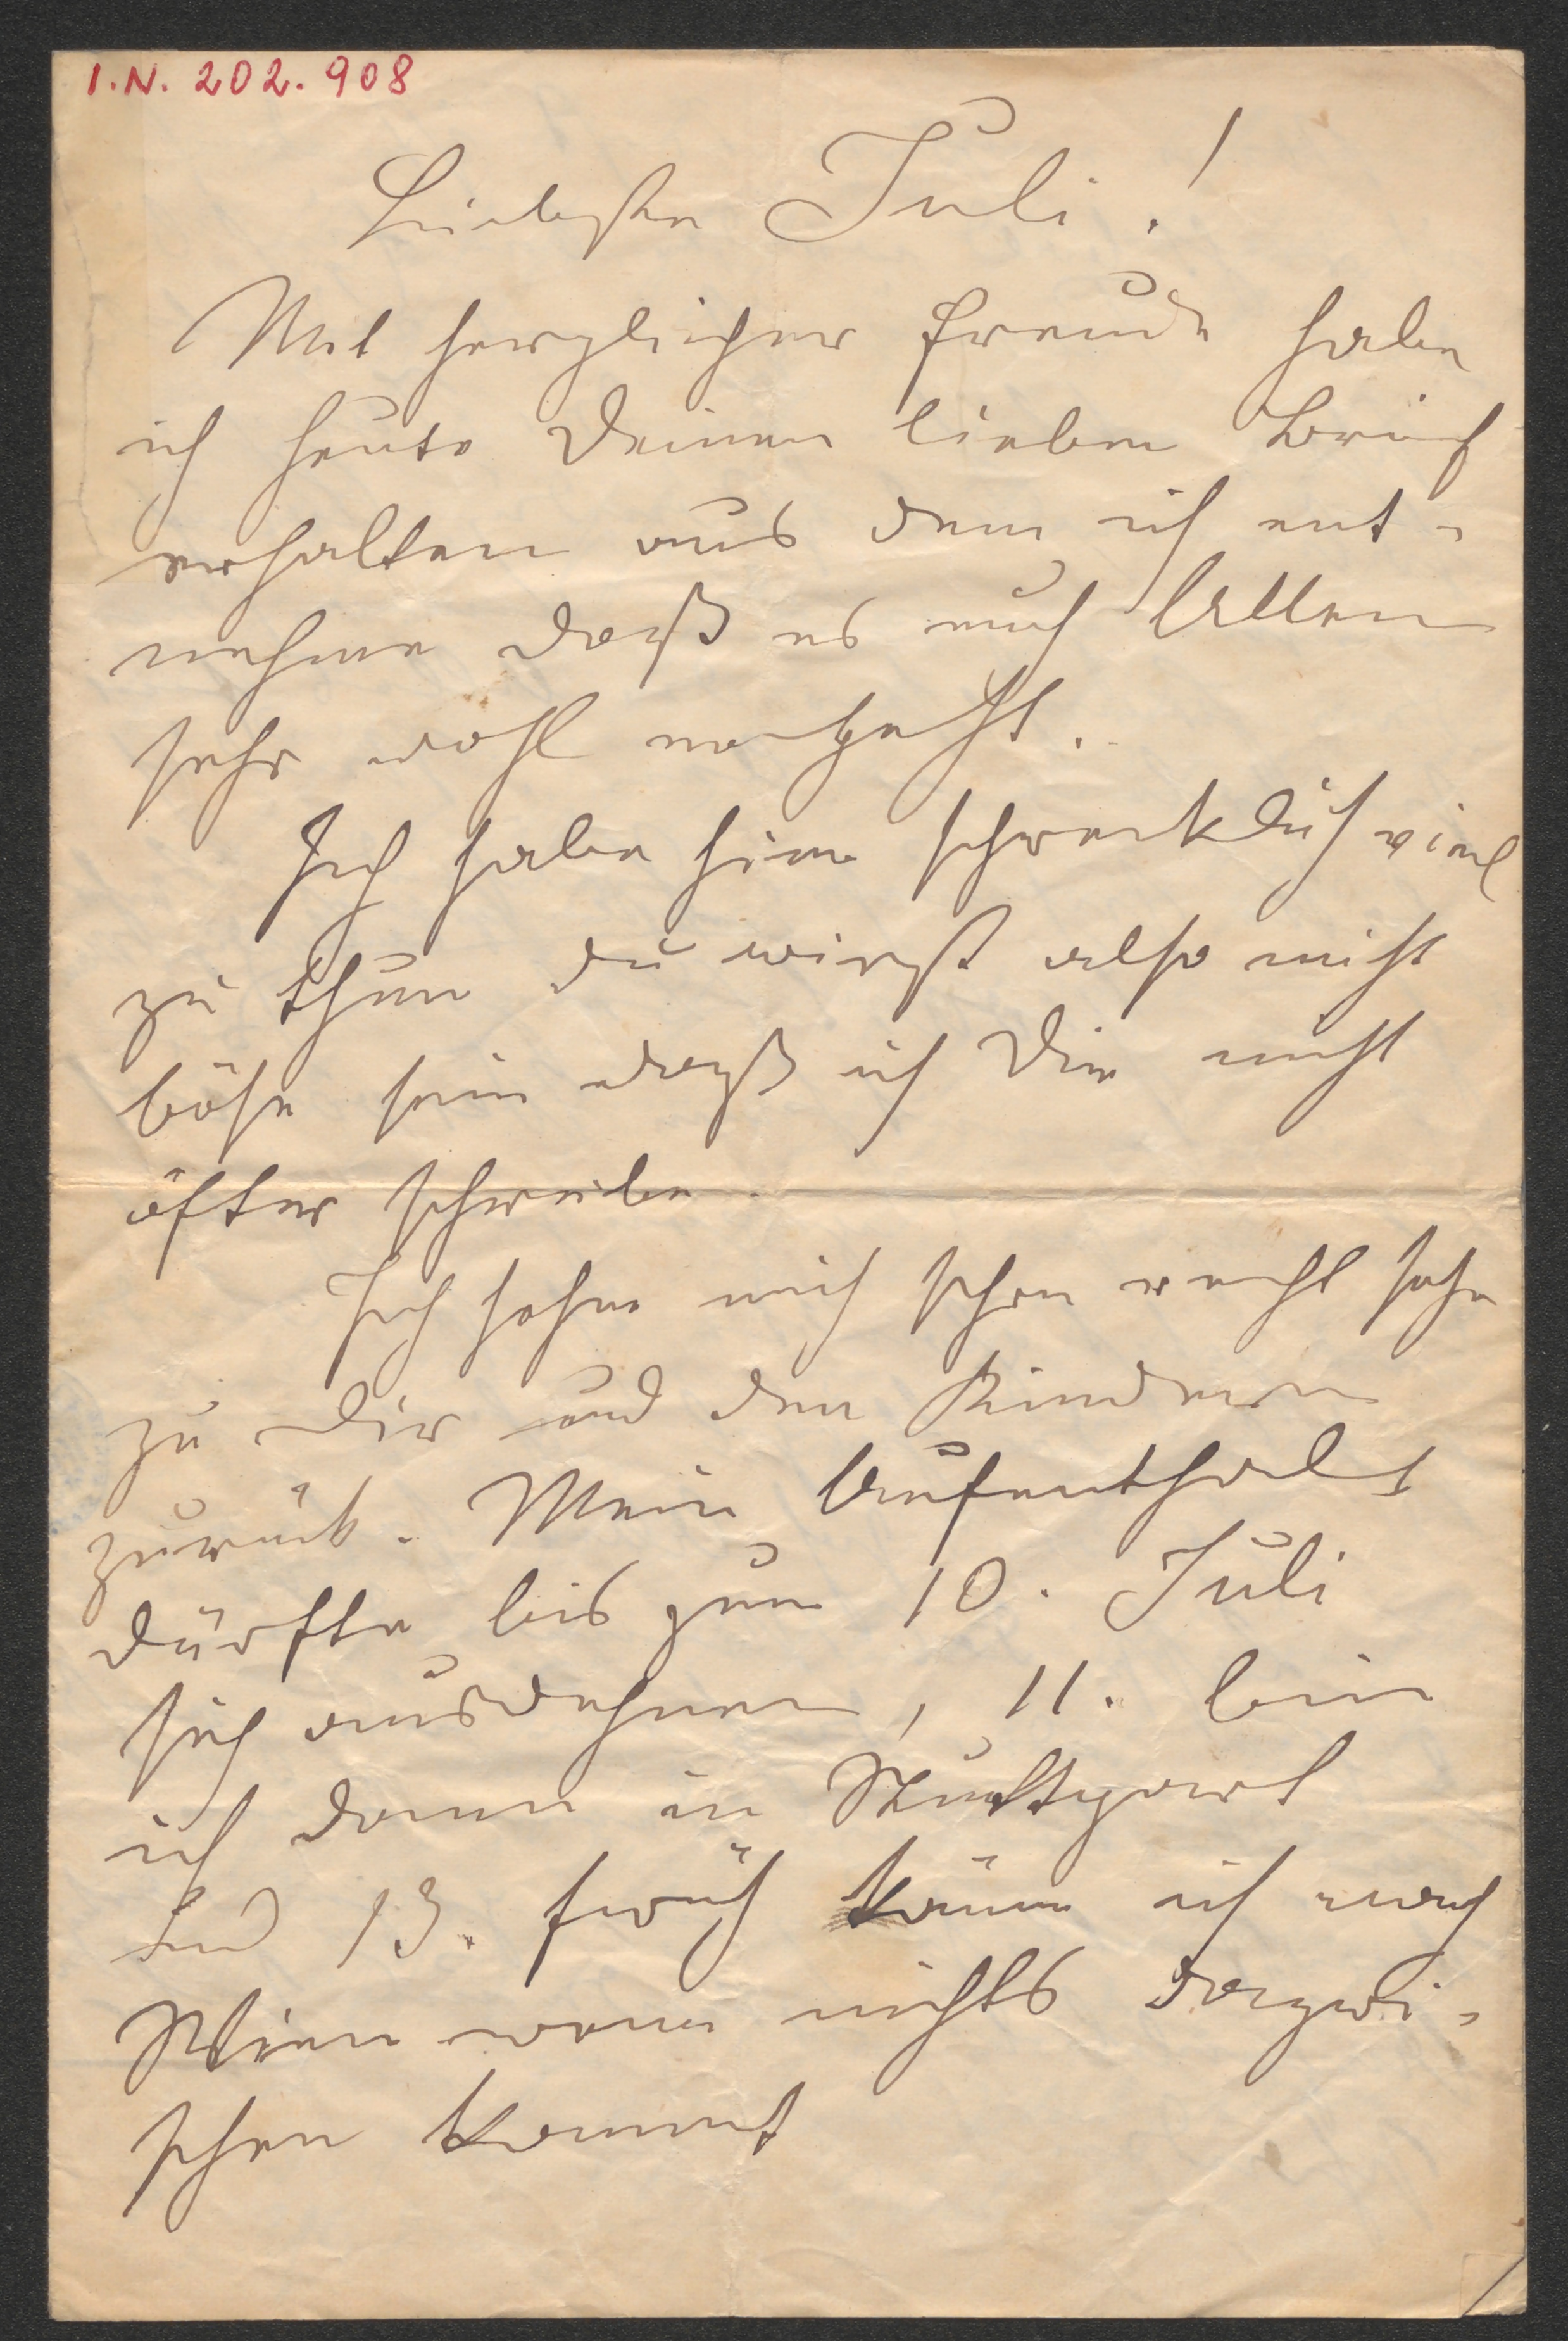 I.N. 202.908
Liebste Juli!
Mit herzlicher Freude habe
ich heute Deinen lieben Brief
erhalten aus dem ich ent-
nehme daß es euch Allen
sehr wohl ergeht.
Ich habe hier schrecklich viel
zu thun du wirst also nicht
böse sein daß ich Dir nicht
öfter schreibe.
Ich sehne mich schon recht sehr
zu Dir und den Kindern
zurück. Mein Aufenthalt
dürfte bis zum 10. Juli
sich ausdehnen, 11. bin
ich dann in Stuttgart
und 13. früh käme ich nach
Wien wenn nichts dazwi-
schen kommt